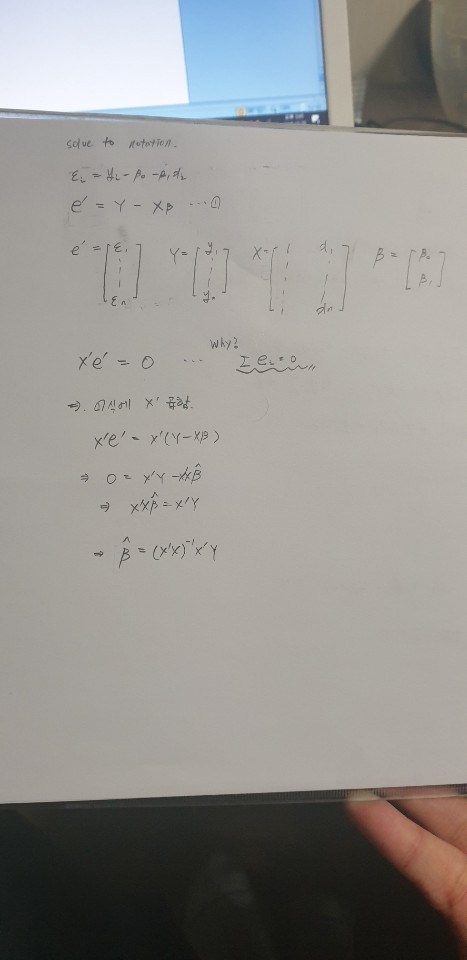 solve to notation.
ε_i = y_i - β₀ - β₁x_i
e' = Y - Xβ ... ①
e' = [ε₁ ⋮ ε_n] Y = [y₁ ⋮ y_n] X = [1 x₁ ⋮ ⋮ 1 x_n] β = [β₀ β₁]
Why?
X'e' = 0 ... Σe_i = 0
⇒. 이식에 X'
X'e' = X'(Y-Xβ)
⇒ 0 = X'Y - X'Xβ̂
⇒ X'Xβ̂ = X'Y
⇒ β̂ = (X'X)⁻¹X'Y